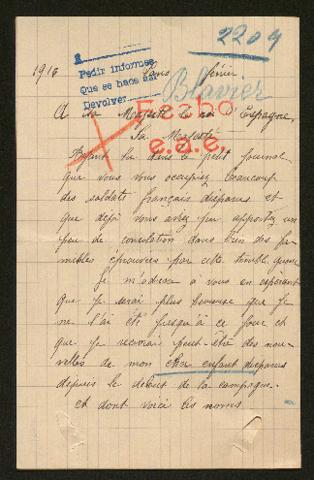 2209
1916
Pedir informes
Que se hace así
Devolver
Paris février
Blavier
Fecho
e.a.e.
A sa Majesté le roi d'Espagne,
Sa Majesté
Ayant lu dans le petit journal
que vous vous occupiez beaucoup
des soldats français disparus et
que dejà vous avez pu apporter un
peu de consolation dans bien des fa-
milles éprouvées par cette terrible guerre
Je m'adresse à vous en espérant
que je serai plus heureuse que je
ne l'ai été jusqu'à ce jour et
que je recevrai peut-être des nou-
velles de mon cher enfant disparus
depuis le début de la campagne
et dont voici les noms